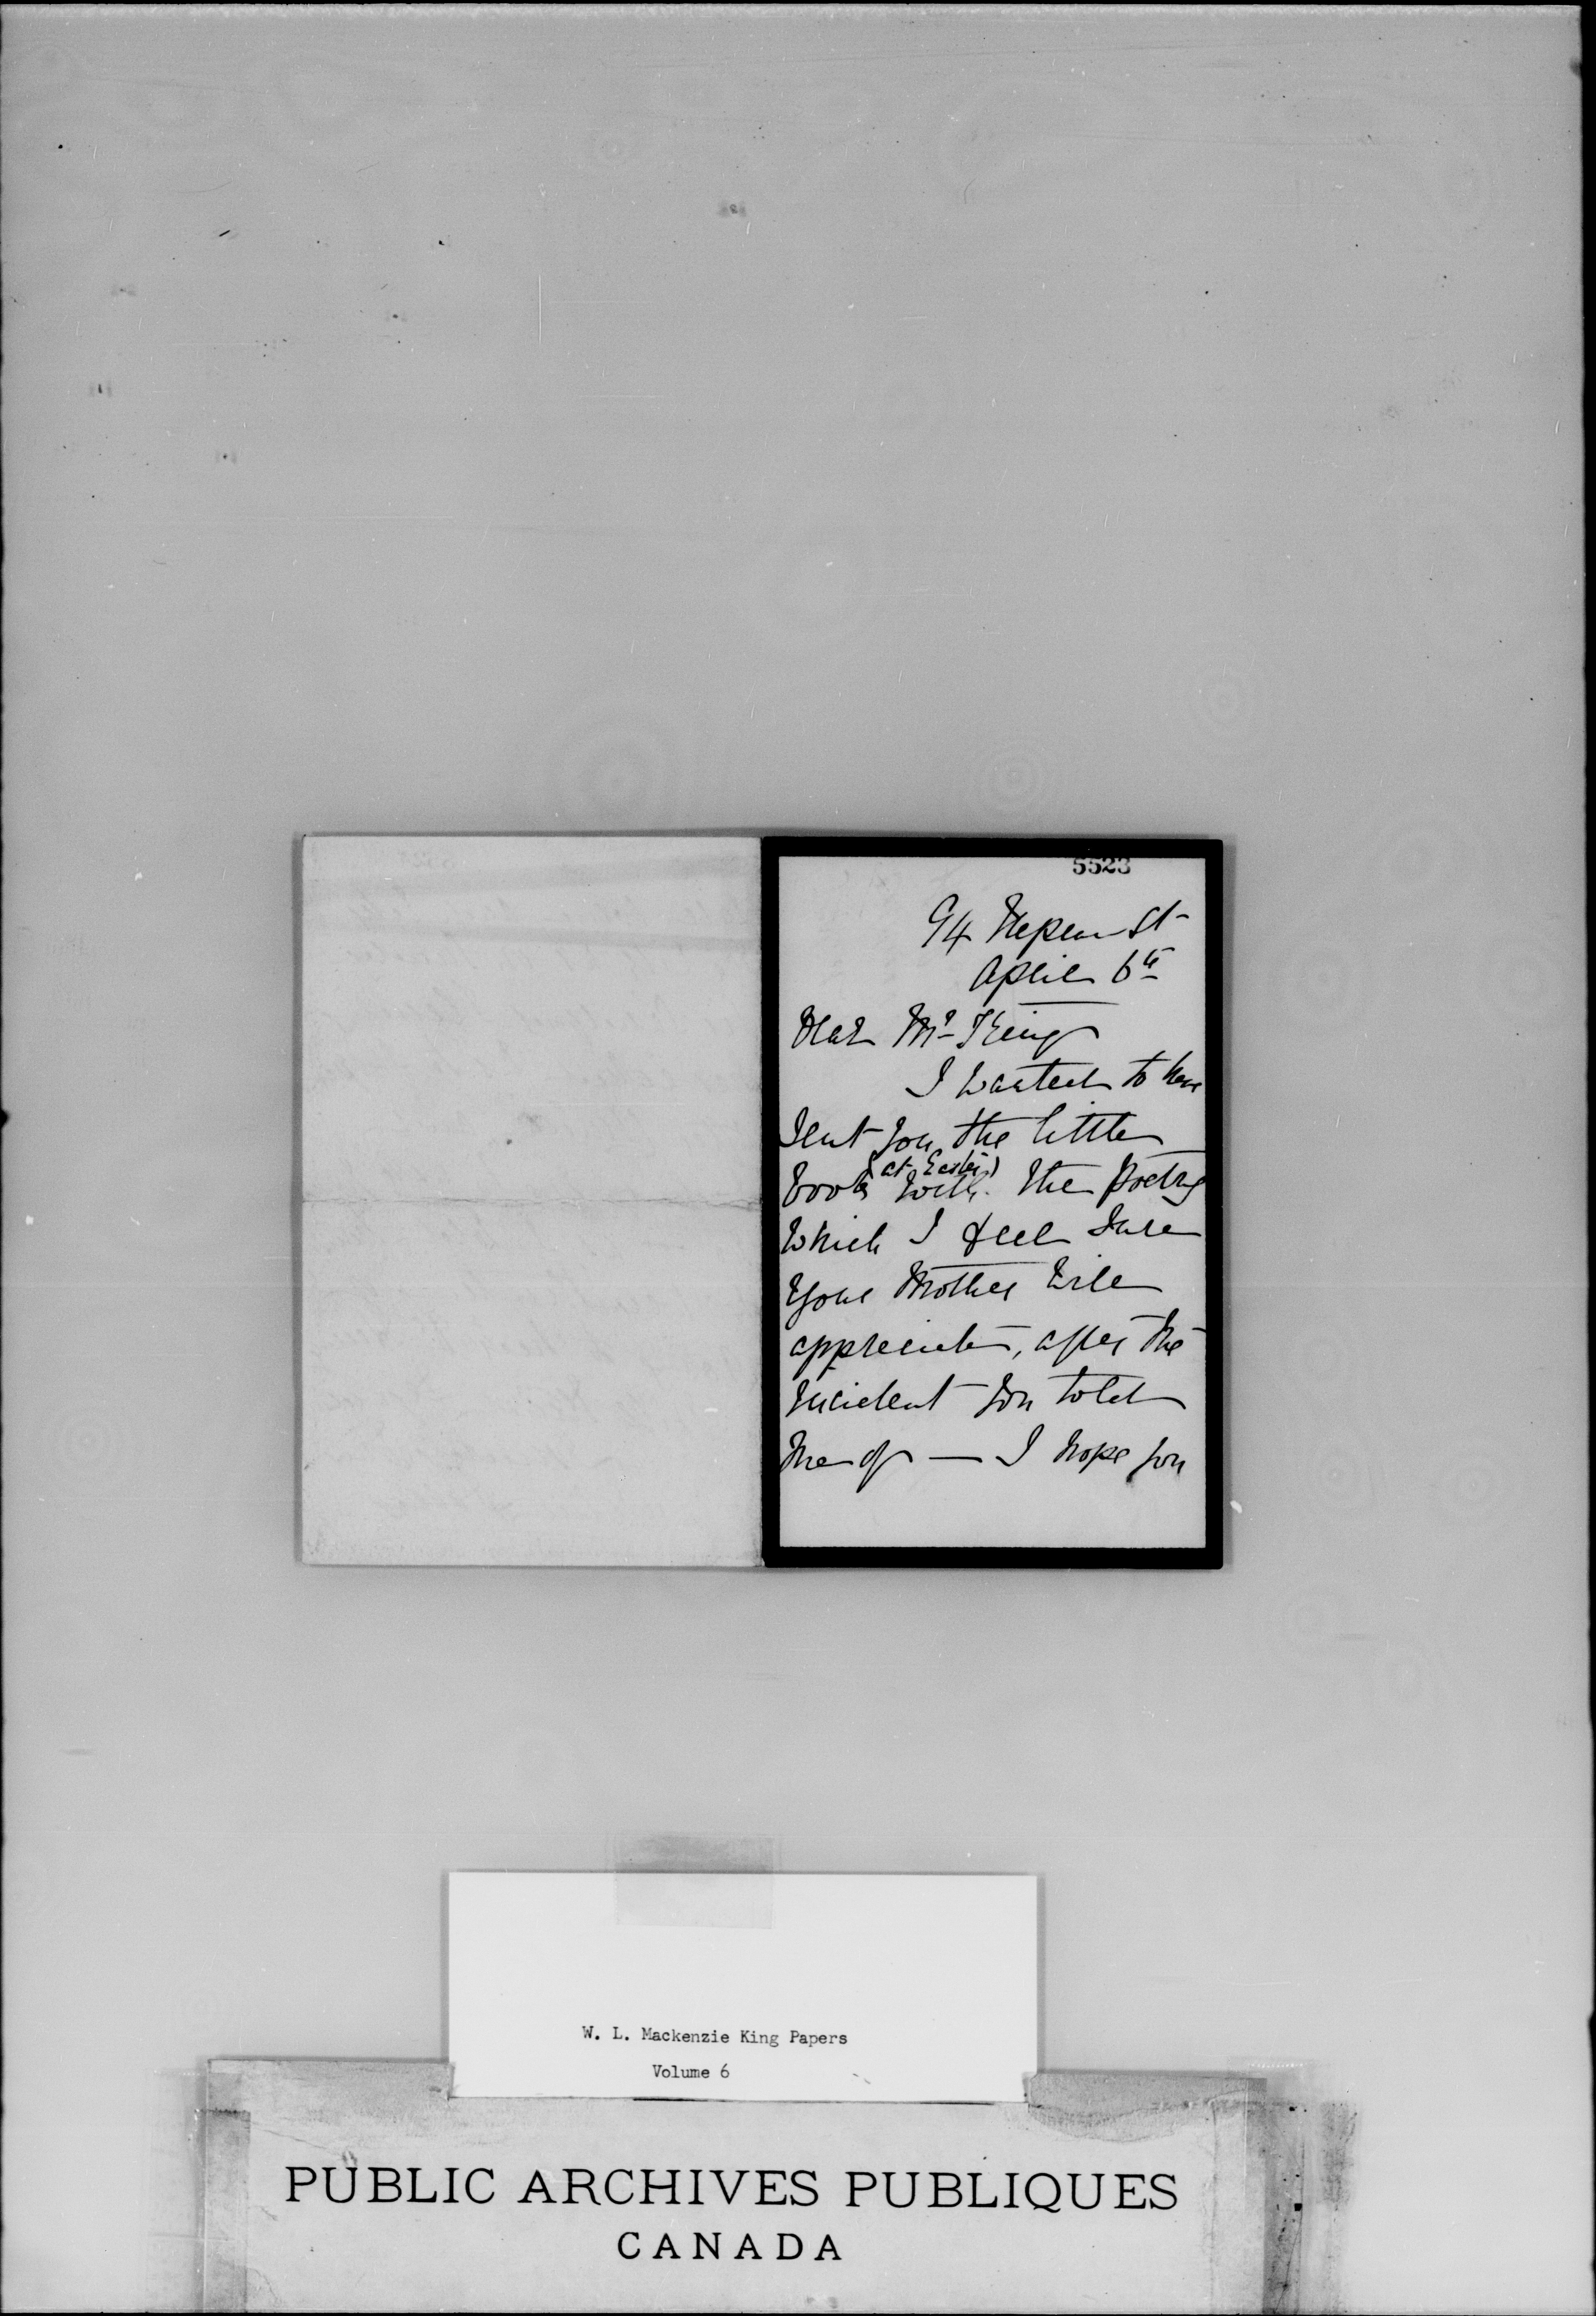 5523
94 Nepean St
April 6th
Dear Mr King
I wanted to have
sent you the little
(at Easter)
book with the poetry
which I feel sure
your Mother will
appreciate, after the
incident you told
me of — I hope you
W. L. Mackenzie King Papers
Volume 6
PUBLIC ARCHIVES PUBLIQUES
CANADA